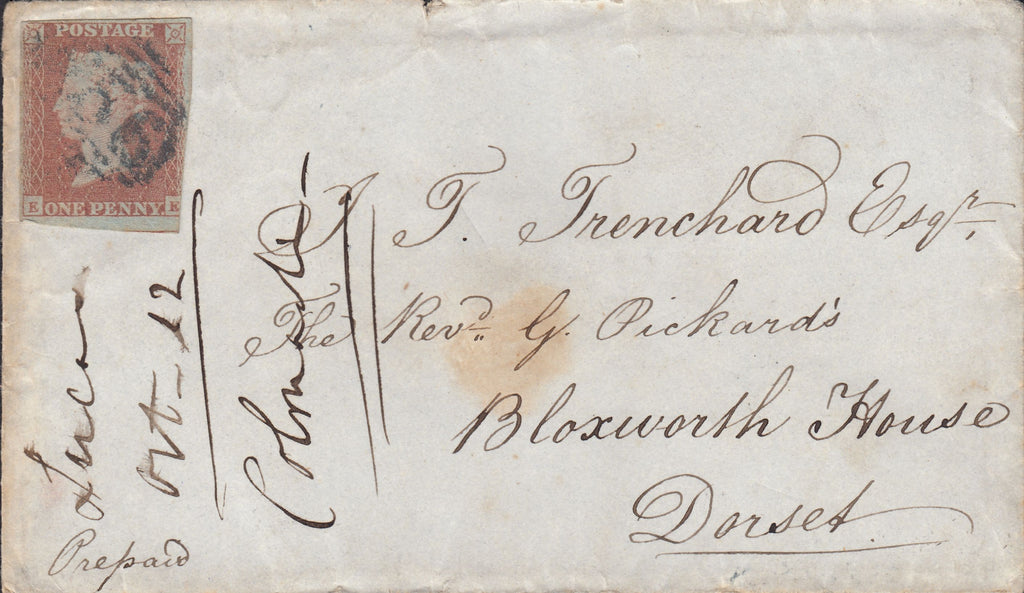 POSTAGE
E ONE PENNY. E
J T. Trenchard Esqr.
The Revd. G. Pickard's
Bloxworth House
Dorset
Prepaid
Oct-12